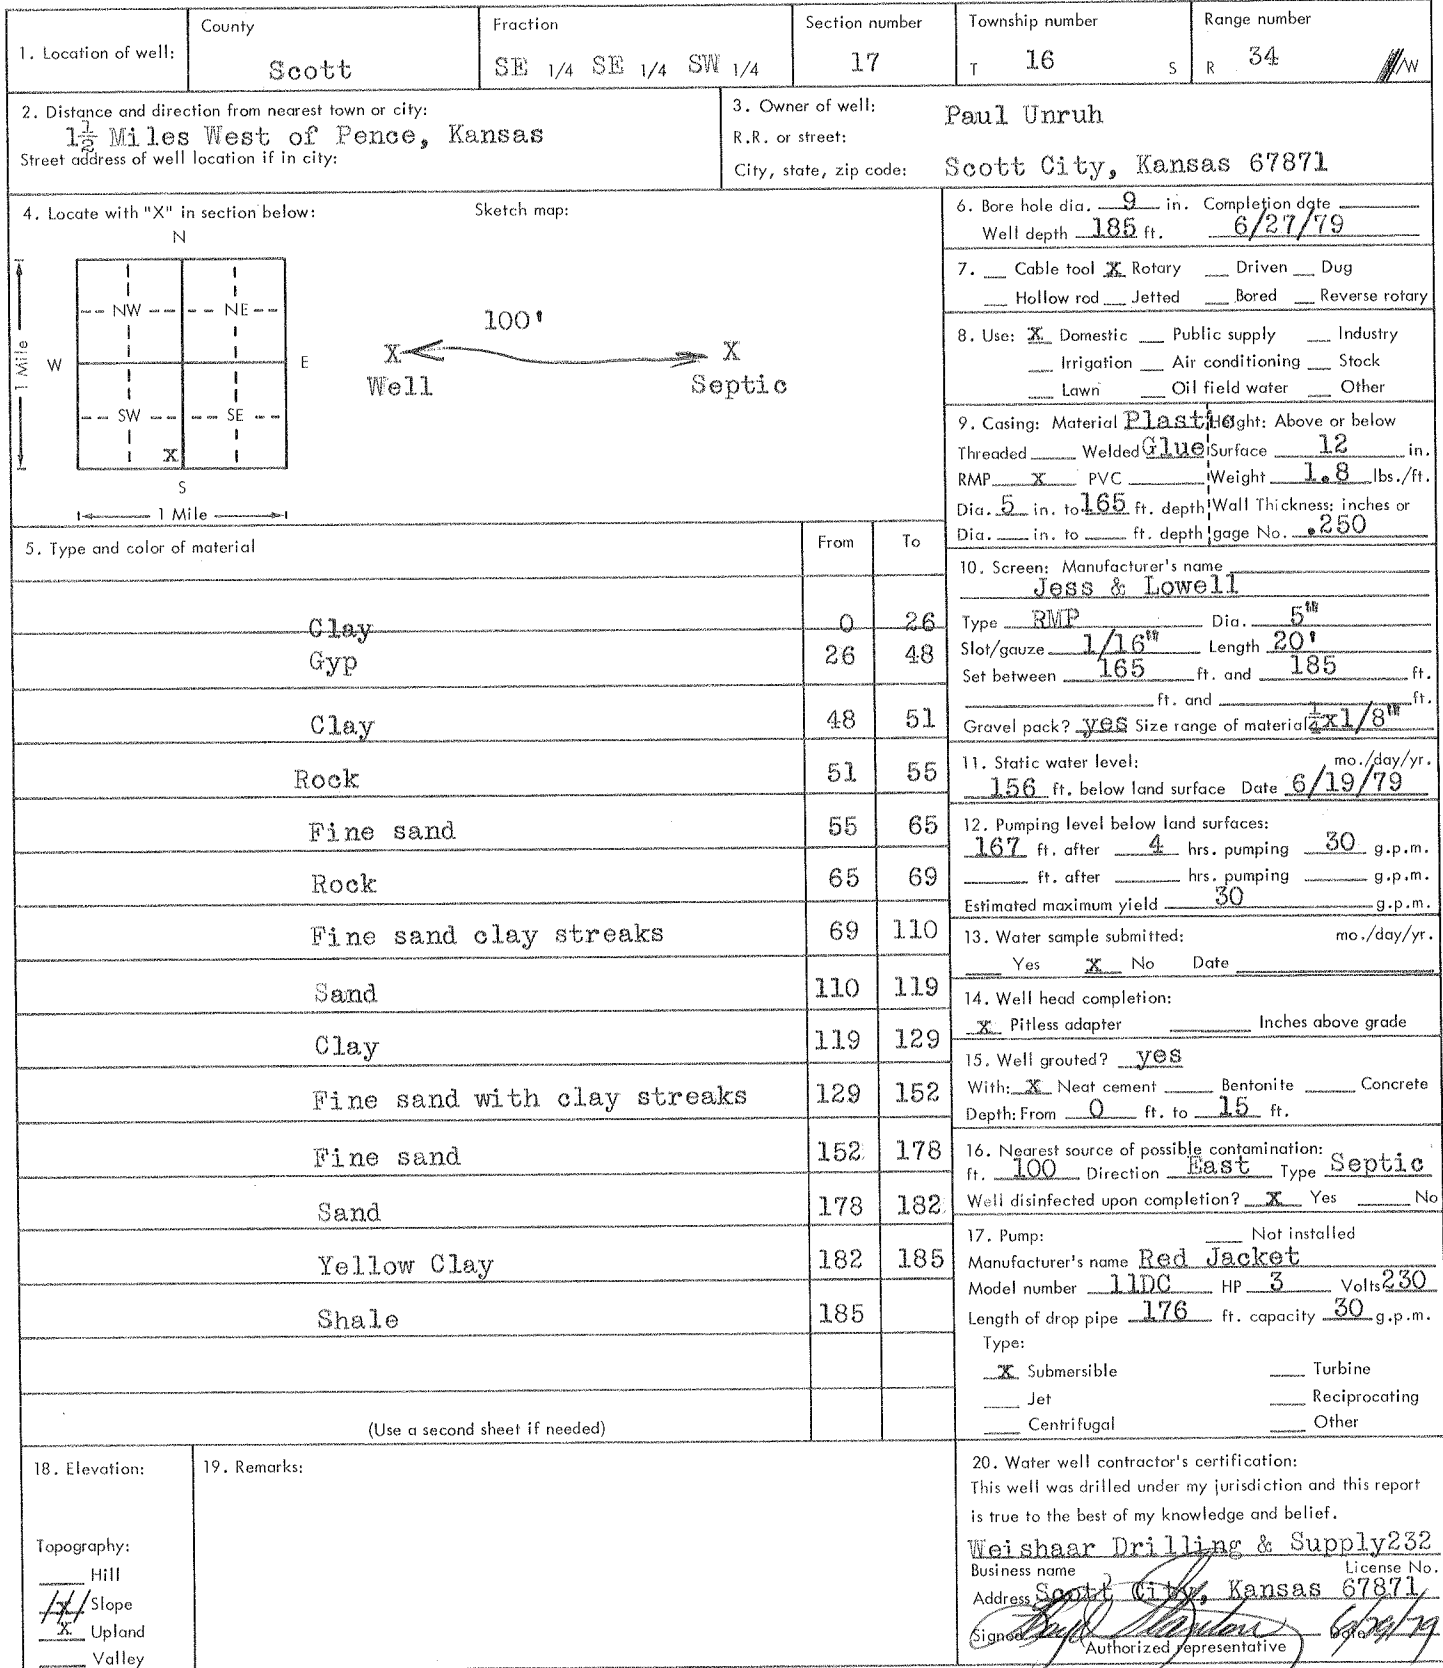 1. Location of well:
County
Scott
Fraction
SE 1/4 SE 1/4 SW 1/4
Section number
17
Township number
T 16 S
Range number
R 34 /W
2. Distance and direction from nearest town or city:
1½ Miles West of Pence, Kansas
Street address of well location if in city:
3. Owner of well: Paul Unruh
R.R. or street:
City, state, zip code: Scott City, Kansas 67871
4. Locate with "X" in section below:
Sketch map:
N
NW NE
W E
SW SE
X
S
1 Mile
1 Mile
100'
X X
Well Septic
5. Type and color of material From To
Clay 0 26
Gyp 26 48
Clay 48 51
Rock 51 55
Fine sand 55 65
Rock 65 69
Fine sand clay streaks 69 110
Sand 110 119
Clay 119 129
Fine sand with clay streaks 129 152
Fine sand 152 178
Sand 178 182
Yellow Clay 182 185
Shale 185
(Use a second sheet if needed)
6. Bore hole dia. 9 in. Completion date
Well depth 185 ft. 6/27/79
7. Cable tool X Rotary Driven Dug
Hollow rod Jetted Bored Reverse rotary
8. Use: X Domestic Public supply Industry
Irrigation Air conditioning Stock
Lawn Oil field water Other
9. Casing: Material Plastic Height: Above or below
Threaded Welded Glue Surface 12 in.
RMP X PVC Weight 1.8 lbs./ft.
Dia. 5 in. to 165 ft. depth Wall Thickness: inches or
Dia. in. to ft. depth gage No. .250
10. Screen: Manufacturer's name
Jess & Lowell
Type RMP Dia. 5"
Slot/gauze 1/16" Length 20'
Set between 165 ft. and 185 ft.
ft. and ft.
Gravel pack? yes Size range of material ¼x1/8"
11. Static water level: mo./day/yr.
156 ft. below land surface Date 6/19/79
12. Pumping level below land surfaces:
167 ft. after 4 hrs. pumping 30 g.p.m.
ft. after hrs. pumping g.p.m.
Estimated maximum yield 30 g.p.m.
13. Water sample submitted: mo./day/yr.
Yes X No Date
14. Well head completion:
X Pitless adapter Inches above grade
15. Well grouted? yes
With: X Neat cement Bentonite Concrete
Depth: From 0 ft. to 15 ft.
16. Nearest source of possible contamination:
ft. 100 Direction East Type Septic
Well disinfected upon completion? X Yes No
17. Pump: Not installed
Manufacturer's name Red Jacket
Model number 11DC HP 3 Volts 230
Length of drop pipe 176 ft. capacity 30 g.p.m.
Type:
X Submersible Turbine
Jet Reciprocating
Centrifugal Other
18. Elevation:
Topography:
Hill
X Slope
X Upland
Valley
19. Remarks:
20. Water well contractor's certification:
This well was drilled under my jurisdiction and this report
is true to the best of my knowledge and belief.
Weishaar Drilling & Supply 232
Business name License No.
Address Scott City, Kansas 67871
Signed Date 6/29/79
Authorized representative